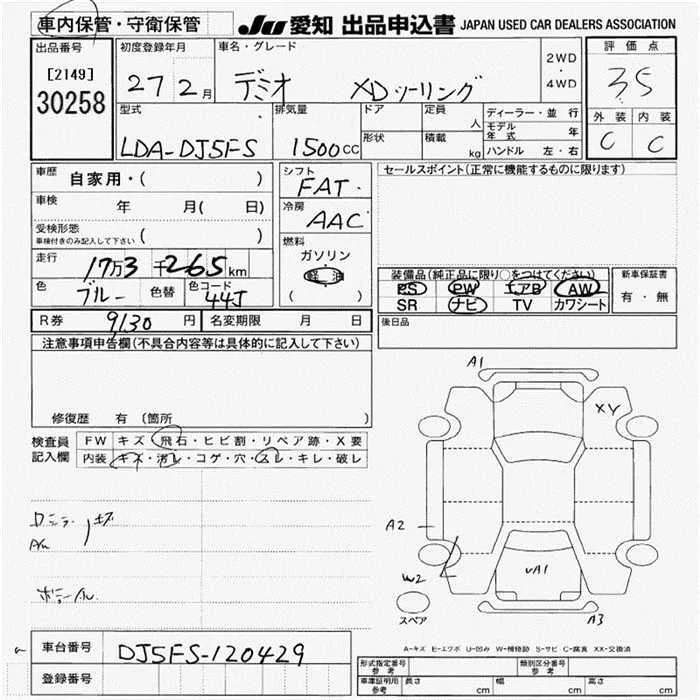 車内保管・守衛保管
JU 愛知 出品申込書 JAPAN USED CAR DEALERS ASSOCIATION
出品番号
[2149]
30258
初度登録年月
27 2月
車名・グレード
デミオ XDツーリング
2WD
・
4WD
評価点
35
外装 内装
C C
型式
LDA-DJ5FS
排気量
1500CC
ドア
形状
定員 人
積載 kg
ディーラー・並行
モデル年式 年
ハンドル 左・右
車歴 自家用・( )
車検 年 月( 日)
受検形態
車検付きのみ記入して下さい ( )
走行 17万3千265km
色 ブルー 色替 色コード 44J
シフト
FAT
冷房
AAC
燃料
ガソリン
軽油
( )
セールスポイント(正常に機能するものに限ります)
装備品(純正品に限り○をつけてください)
PS PW エアB AW
SR ナビ TV カワシート
新車保証書
有・無
R券 9130円 名変期限 月 日
後日品
注意事項申告欄(不具合内容等は具体的に記入して下さい)
修復歴 有 (箇所 )
検査員記入欄
FW キズ・飛石・ヒビ割・リペア跡・X要
内装 キズ・汚レ・コゲ・穴・スレ・キレ・破レ
キズ
A1
XY
A2
W2
UA1
A3
スペア
A-キズ E-エクボ U-凹み W-補修跡 S-サビ C-腐食 XX-交換済
車台番号 DJ5FS-120429
登録番号
形式指定番号 参考
類別区分番号 参考
車庫証明用 参考 長さ cm 幅 cm 高さ cm